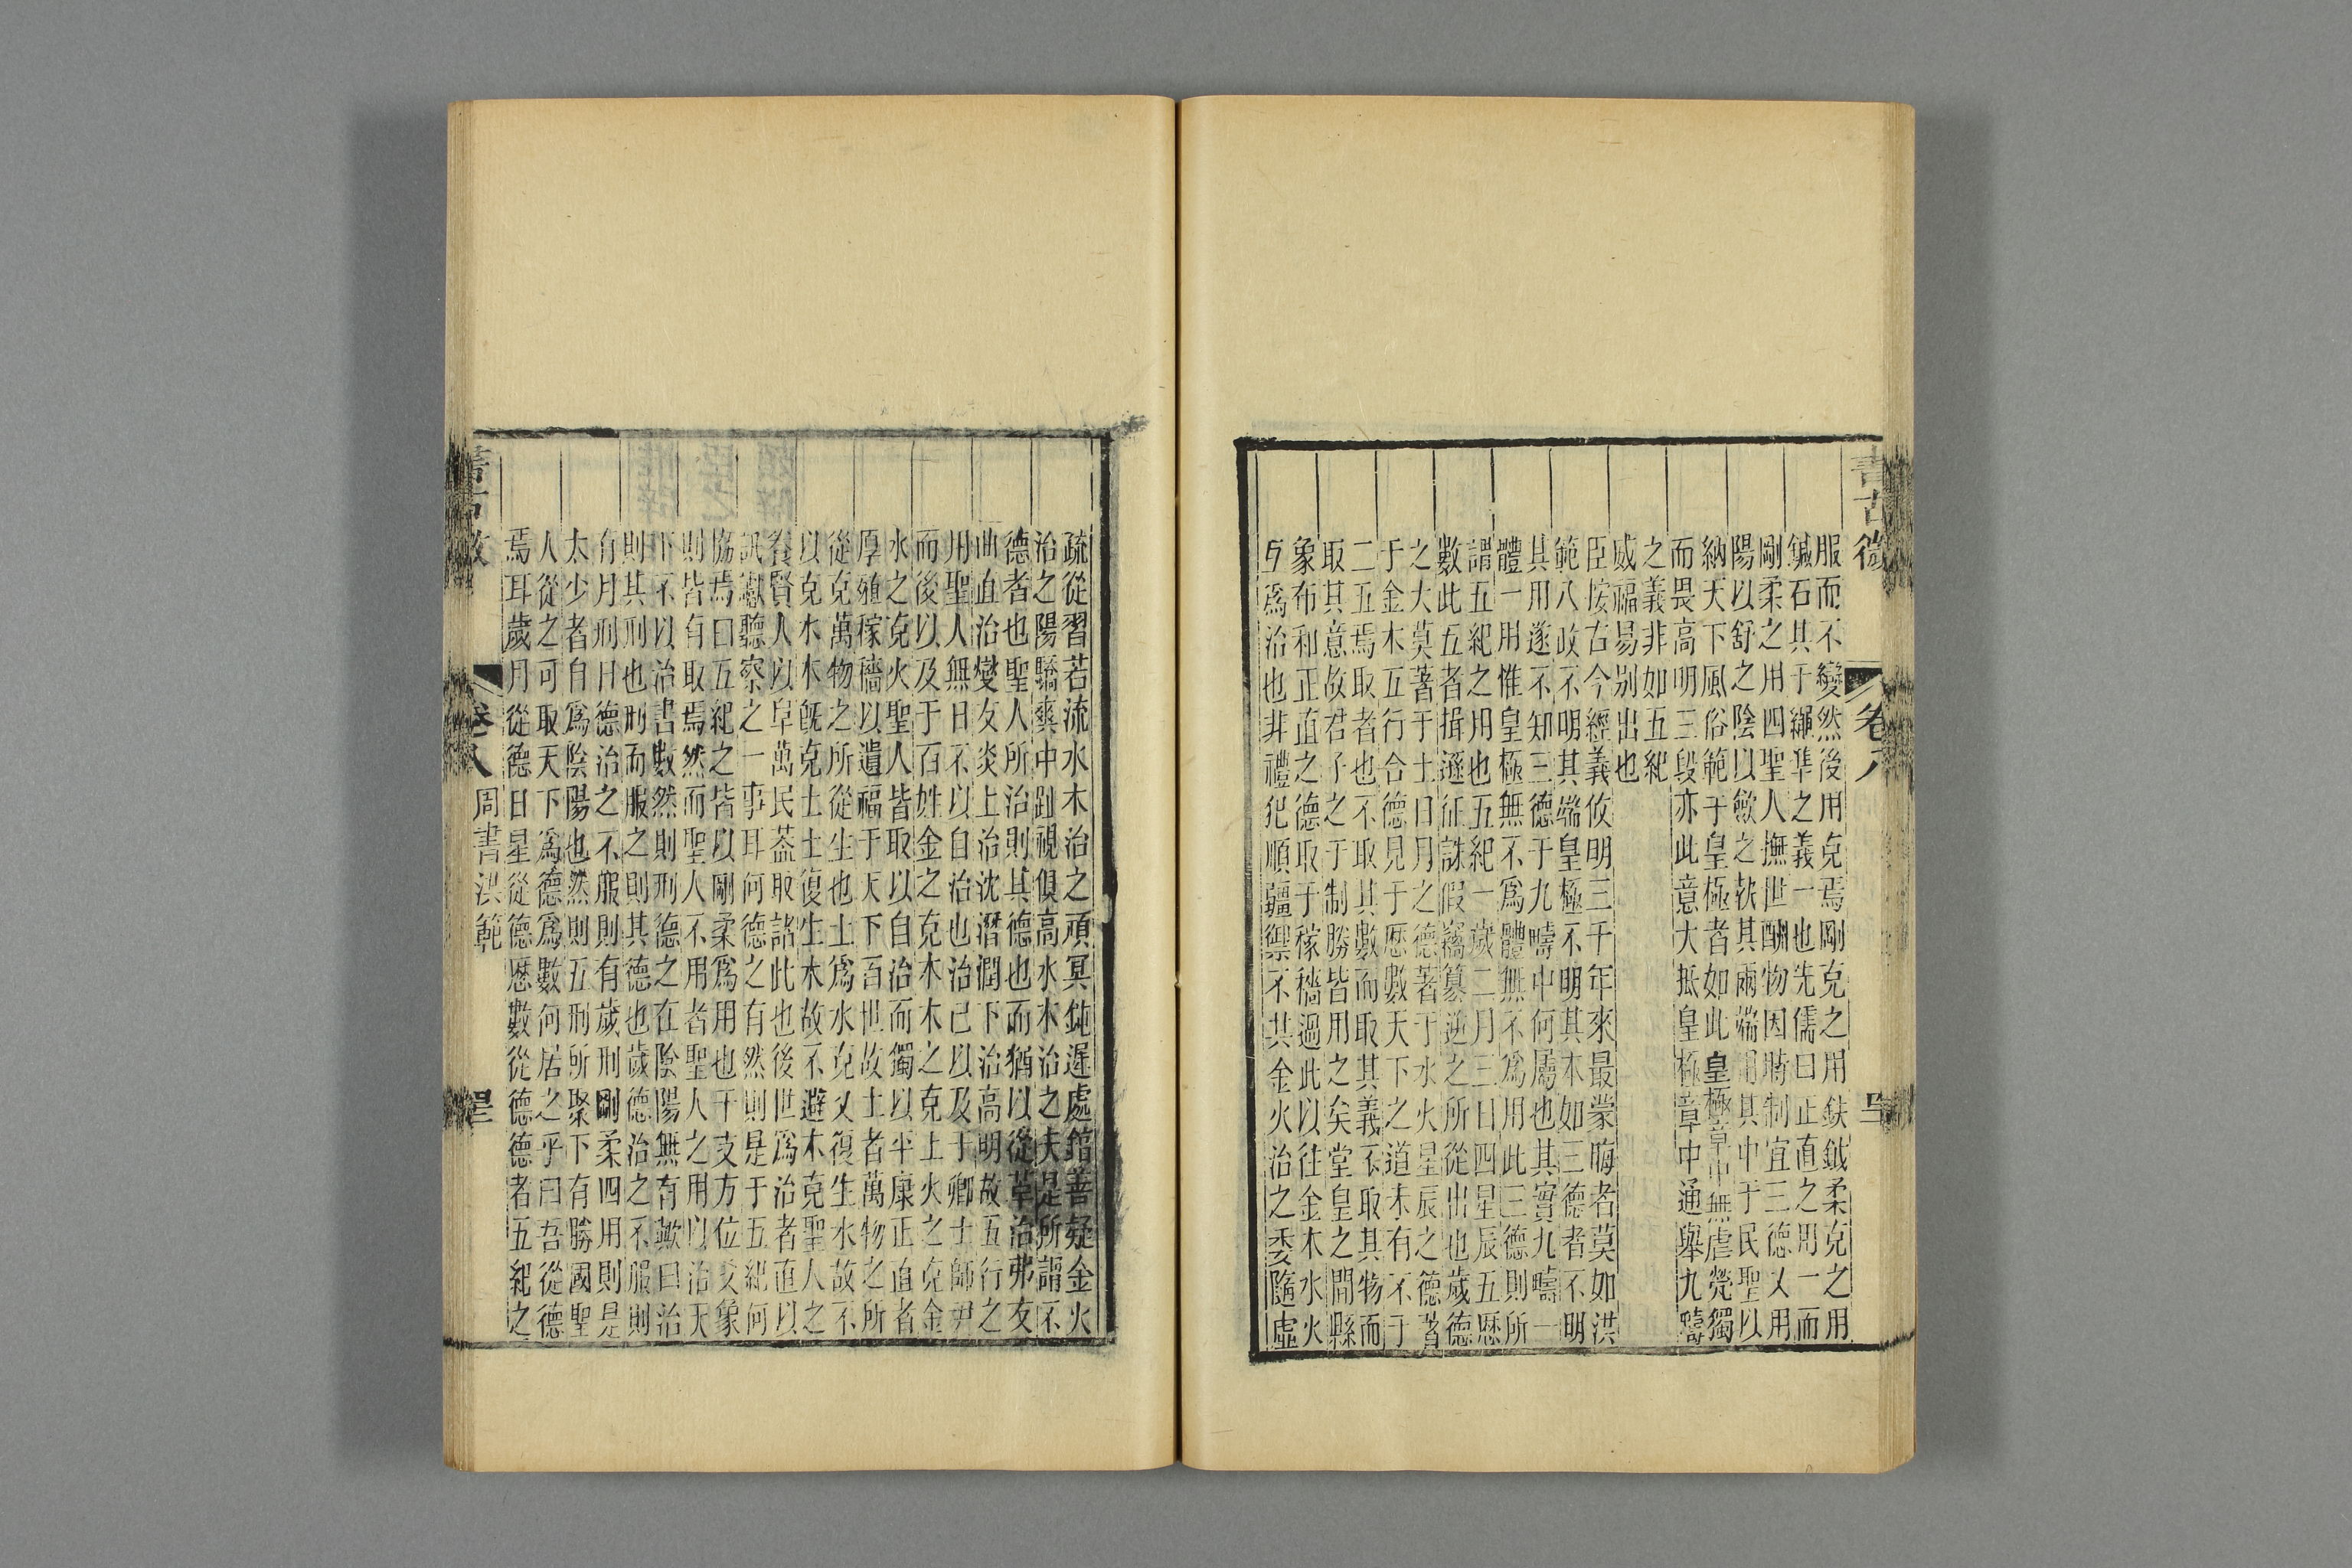 書古微
卷八
服而不變然後用克焉剛克之用鈇鉞柔克之用
鍼石其于繩準之義一也先儒曰正直之用一而
剛柔之用四聖人撫世酬物因時制宜三德乂用
陽以舒之陰以斂之執其兩端用其中于民聖以
納天下風俗範于皇極者如此皇極章中無虐煢獨
而畏高明三段亦此意大抵皇極章中通舉九疇
之義非如五紀
威福易别出也
臣按古今經義攸明三千年來最蒙晦者莫如洪
範八政不明其端皇極不明其本如三德者不明
其用遂不知三德于九疇中何屬也其實九疇一
體一用惟皇極無不爲體無不爲用此三德則所
謂五紀之用也五紀一歲二月三日四星辰五厯
數此五者揖遜征誅假竊簒逆之所從出也歲德
之大莫著于土日月之德著于水火星辰之德著
于金木互行合德見于厯數天下之道未有不于
二五焉取者也不取其數而取其義不取其物而
取其意故君子之于制勝皆用之矣堂皇之間縣
象布和正直之德取于稼穡過此以往金木水火
互爲治也非禮犯順疆禦不共金火治之委隨虛
疏從習若流水木治之頑冥鈍遲處錧善疑金火
治之陽驕爽中趾視俱高水木治之夫是所謂不
德者也聖人所治則其德也而猶以從革治弗友
曲直治燮友炎上治沈潛潤下治高明故五行之
用聖人無日不以自治也治己以及于卿士師尹
而後以及于百姓金之克木木之克土火之克金
水之克火聖人皆取以自治而獨以平康正直者
厚殖稼穡以遺福于天下百世故土者萬物之所
從克萬物之所從生也土爲水克又復生水故不
以克水木旣克土土復生木故不避木克聖人之
養賢人以阜萬民葢取諸此也後世爲治者直以
訊讞聽察之一事耳何德之有然則是于五紀何
協焉曰五紀之皆以剛柔爲用也干支方位爻象
則皆有取焉然而聖人不用者聖人之用以治天
下不以治書數然則刑德之在陰陽無有歟曰治
則其刑也刑而服之則其德也歲德治之不服則
有月刑日德治之不服則有歲刑剛柔四用則是
太少者自爲陰陽也然則五刑所聚下有勝國聖
人從之可取天下爲德爲數何居之乎曰吾從德
焉耳歲月從德日星從德厯數從德德者五紀之
書古微
卷八
周書洪範